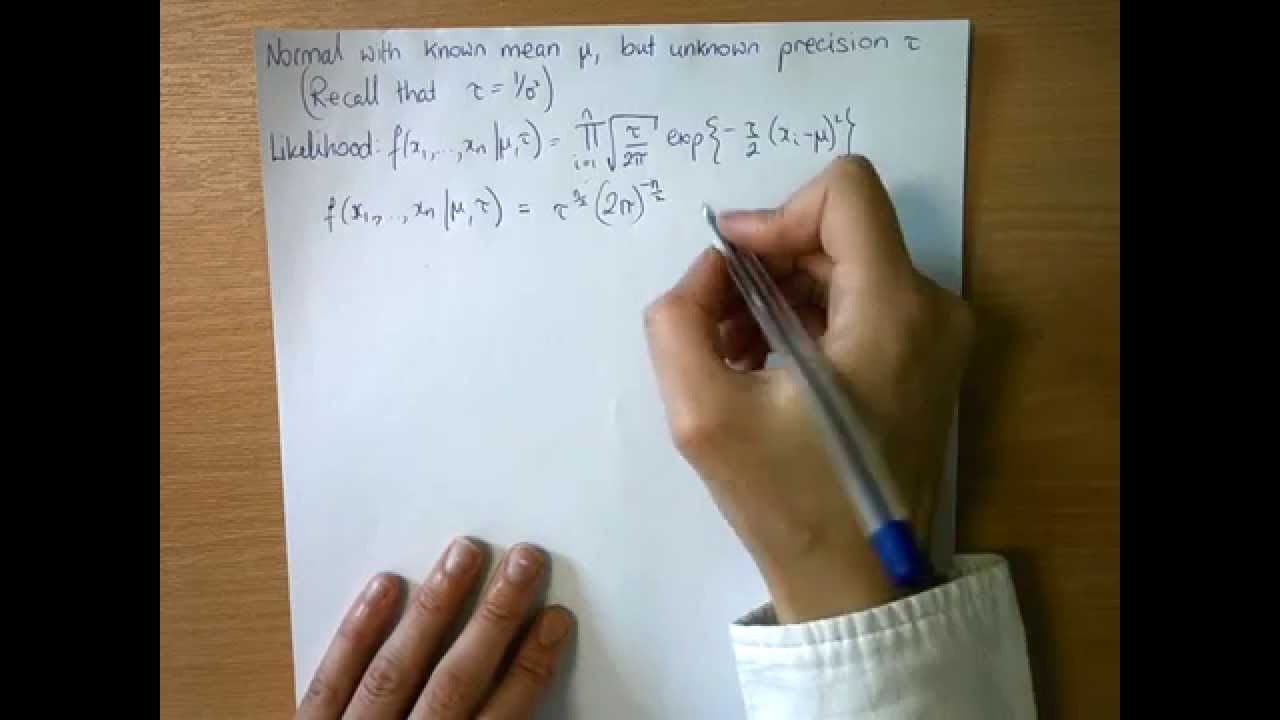 Normal with known mean μ, but unknown precision τ
(Recall that τ = 1/σ²)
Likelihood: f(x₁,...,xₙ|μ,τ) = ∏ᵢ₌₁ⁿ √(τ/2π) exp{-τ/2 (xᵢ-μ)²}
f(x₁,...,xₙ|μ,τ) = τ^(n/2) (2π)^(-n/2)